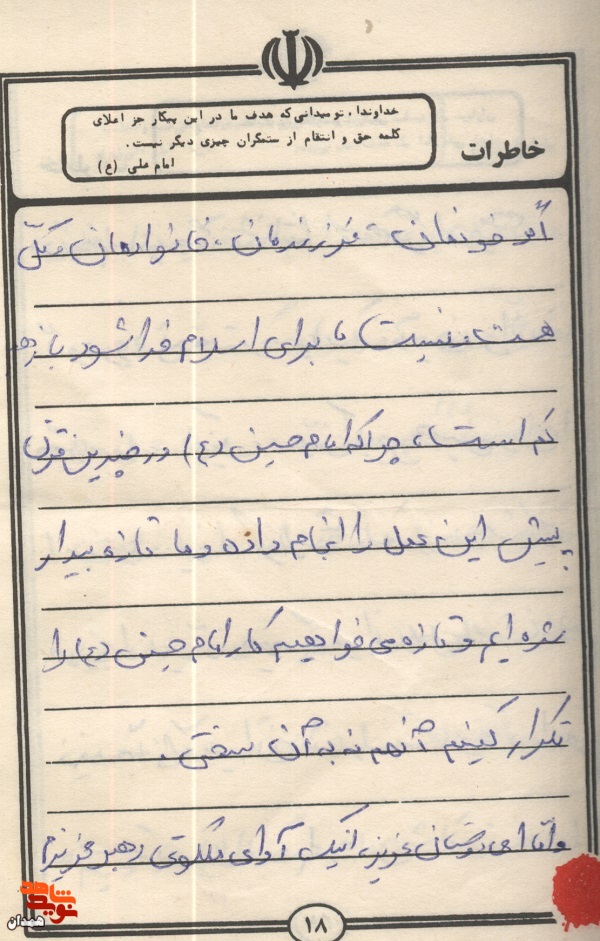 خداوندا، تو میدانی که هدف ما در این پیکار جز اعلای
کلمه حق و انتقام از ستمگران چیزی دیگر نیست.
امام علی (ع)
خاطرات
اگر خونمان، فرزندمان، خانواده‌مان و کلّی
هست و نیست ما برای اسلام فدا شود باز هم
کم است، چرا که امام حسین (ع) در چندین قرن
پیش این عمل را انجام داده و ما تازه بیدار
شده ایم و تازه می خواهیم کار امام حسین (ع) را
تکرار کنیم آنهم نه به آن سختی.
و امّا ای دوستانی عزیز، اینک آوای ملکوتی رهبر عزیزم
۱۸
شاهد
نوید
همدان